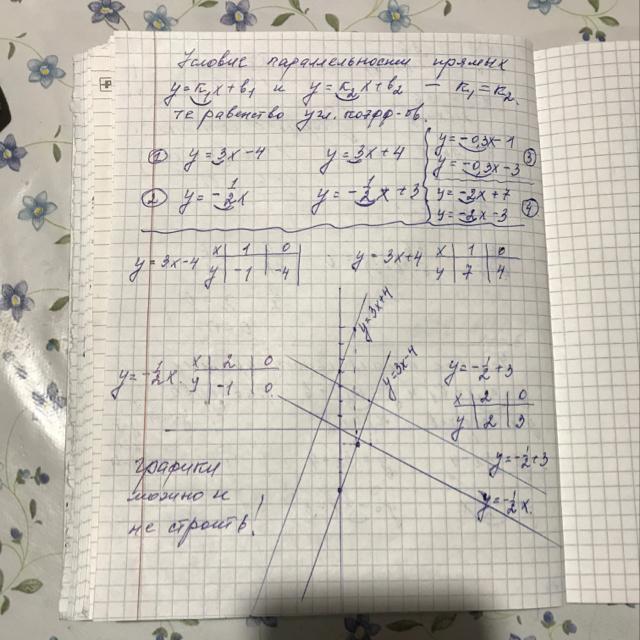 Условие параллельности прямых
y=k₁x+b₁ и y=k₂x+b₂ — k₁=k₂.
те равенство угл. коэфф-ов.
① y=3x-4 y=3x+4
② y=-1/2x y=-1/2x+3
y=-0,3x-1
y=-0,3x-3 ③
y=-2x+7
y=-2x-3 ④
y=3x-4 x | 1 | 0
y | -1 | -4
y=3x+4 x | 1 | 0
y | 7 | 4
y=3x+4
y=3x-4
y=-1/2x x | 2 | 0
y | -1 | 0
y=-1/2+3
x | 2 | 0
y | 2 | 3
y=-1/2+3
y=-1/2x.
Графики
можно и
не строить!